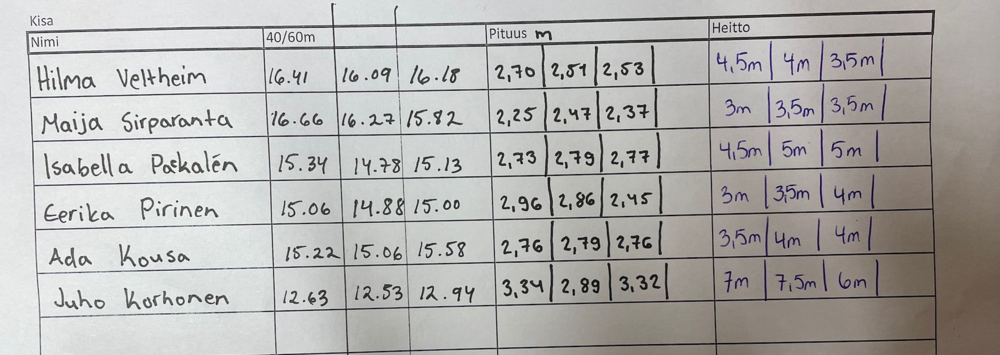 Kisa
Nimi 40/60m Pituus m Heitto
Hilma Veltheim 16.41 16.09 16.18 2,70 2,51 2,53 4,5m 4m 3,5m
Maija Sirparanta 16.66 16.27 15.82 2,25 2,47 2,37 3m 3,5m 3,5m
Isabella Paškalén 15.34 14.78 15.13 2,73 2,79 2,77 4,5m 5m 5m
Eerika Pirinen 15.06 14.88 15.00 2,96 2,86 2,45 3m 3,5m 4m
Ada Kousa 15.22 15.06 15.58 2,76 2,79 2,76 3,5m 4m 4m
Juho Korhonen 12.63 12.53 12.94 3,34 2,89 3,32 7m 7,5m 6m